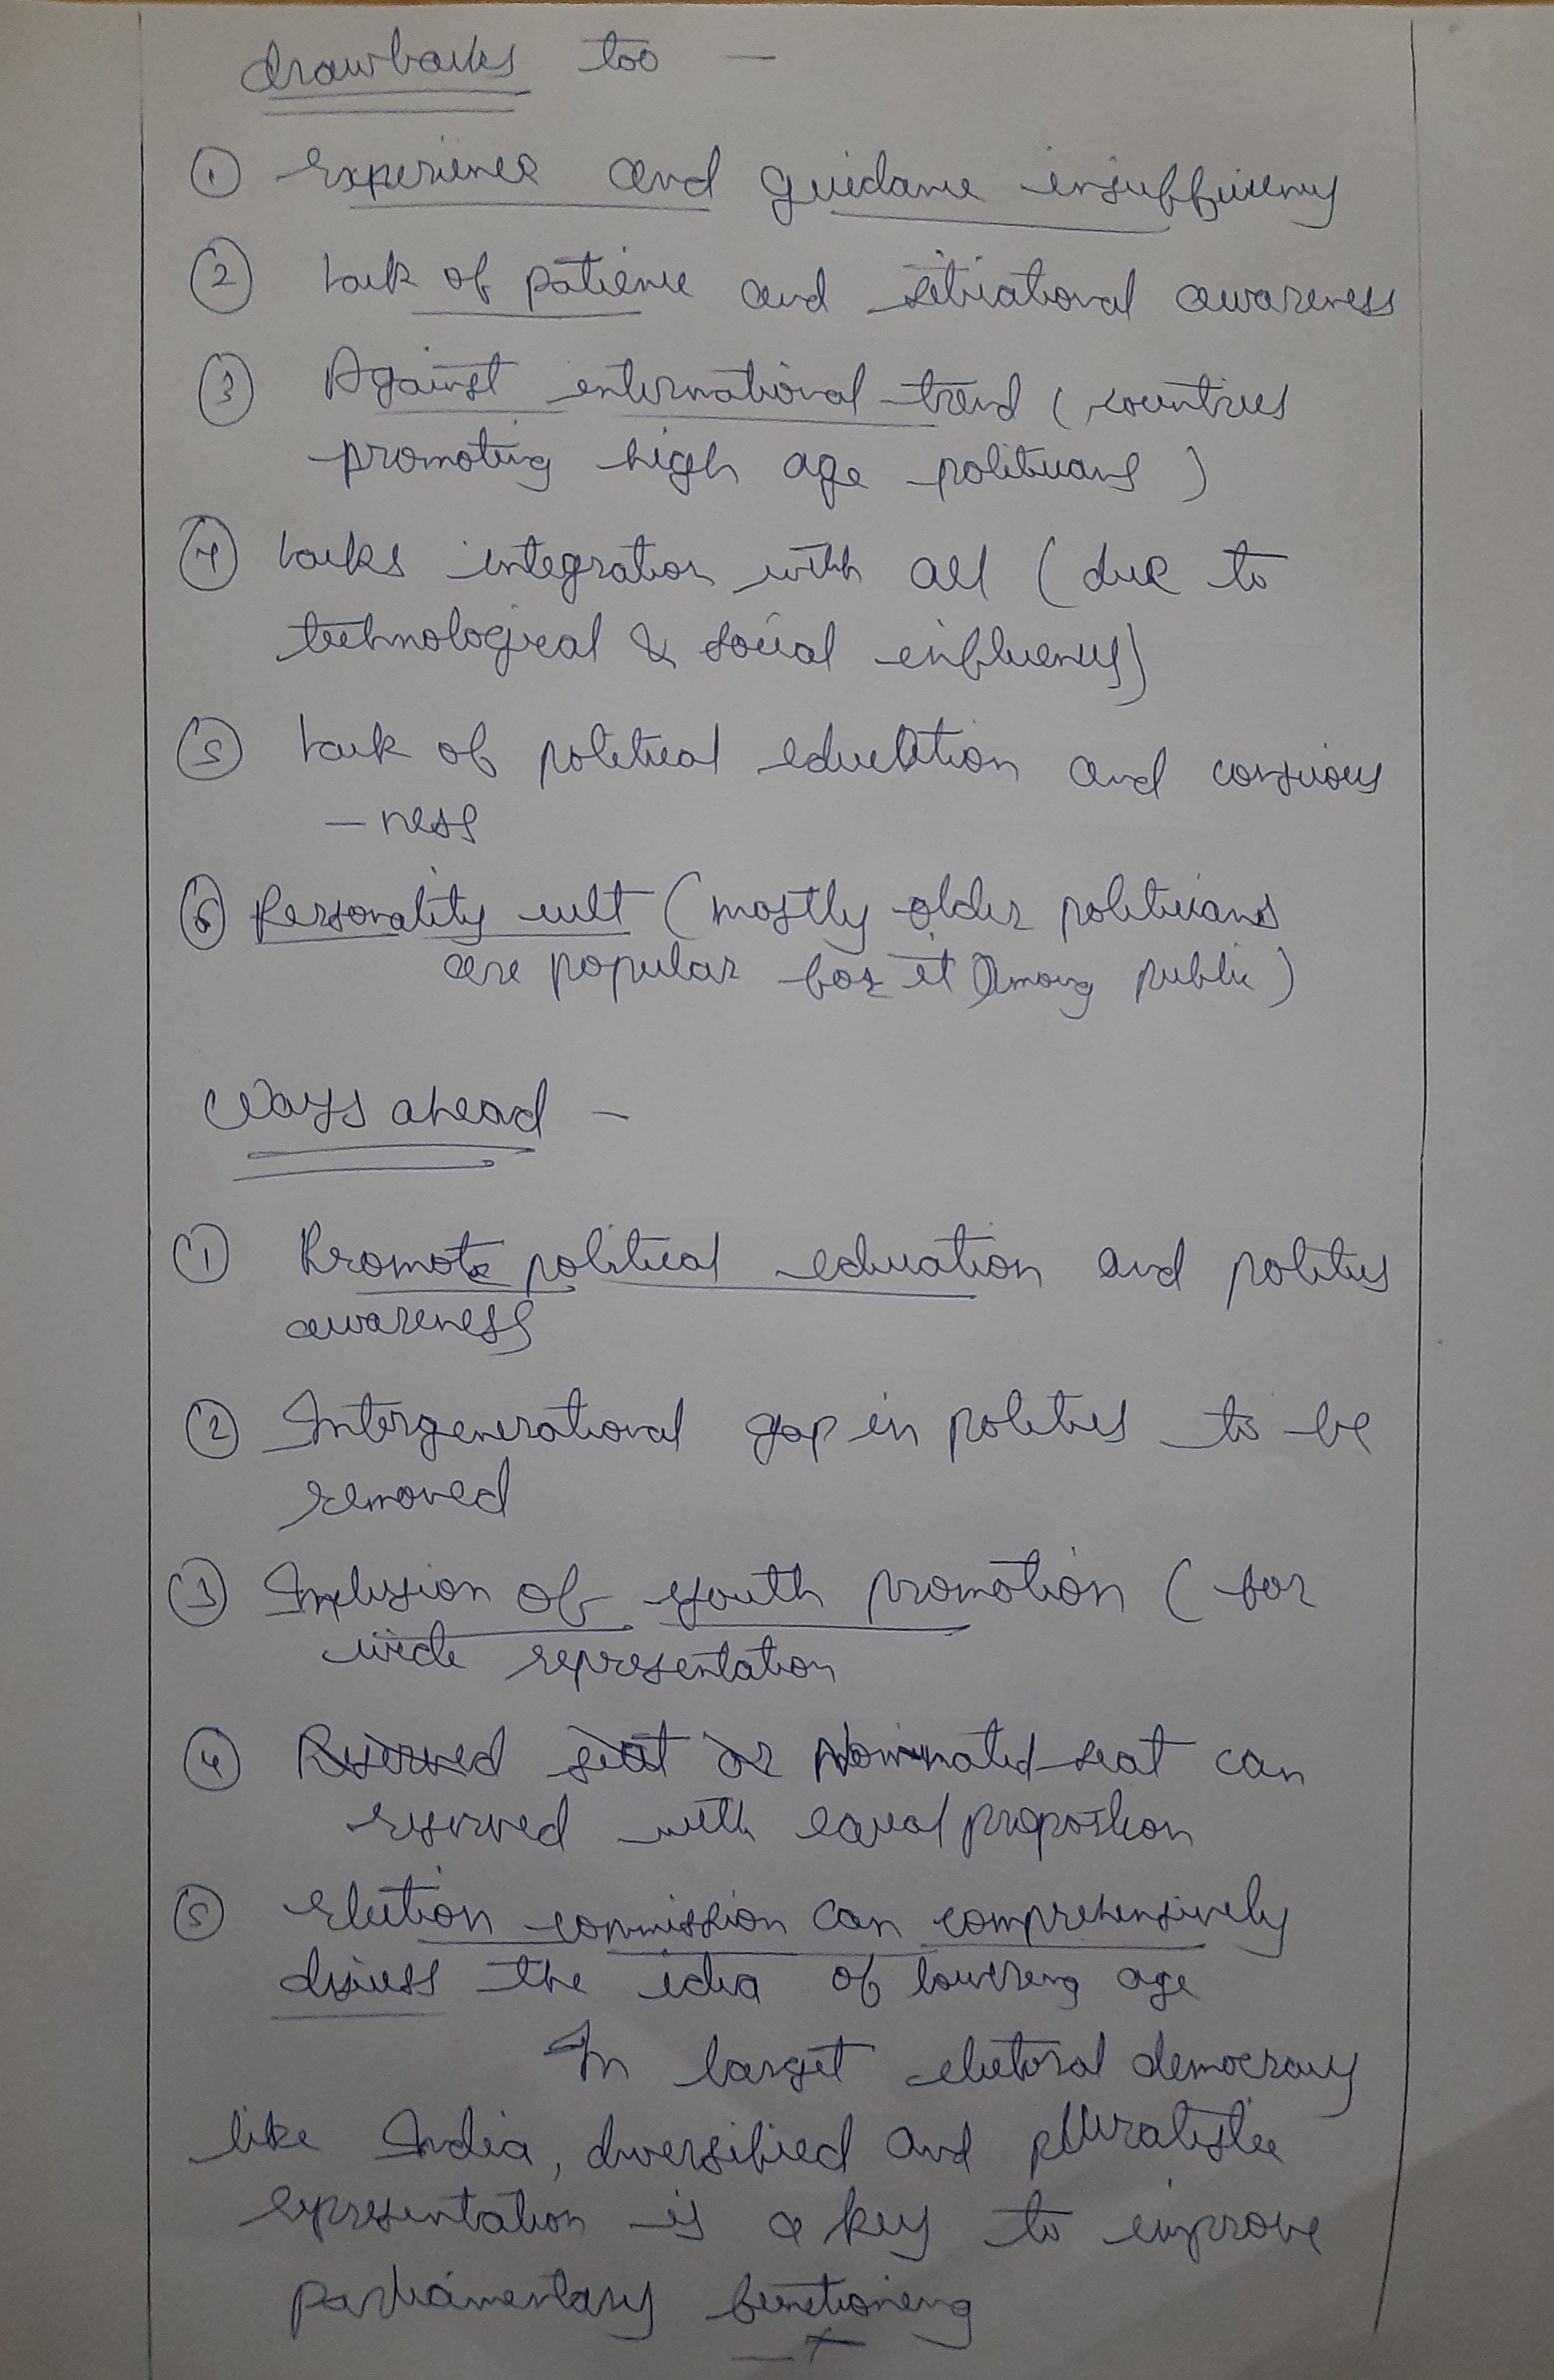 drawbacks too —
① Experience and guidance insufficiency
② Lack of patience and situational awareness
③ Against international trend (countries
promoting high age politicians)
④ Lacks integration with all (due to
technological & social influences)
⑤ Lack of political education and conscious
—ness
⑥ Personality cult (mostly older politicians
are popular for it among public)
Ways ahead —
① Promote political education and politics
awareness
② Intergenerational gap in politics to be
removed
③ Inclusion of youth promotion (for
wide representation
④ Reserved seat or Nominated seat can
reserved with equal proportion
⑤ Election commission can comprehensively
discuss the idea of lowering age
In larget electoral democracy
like India, diversified and pluralistic
representation is a key to improve
parliamentary functioning